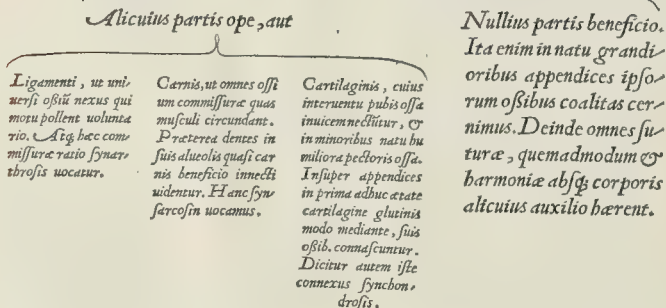 Alicuius partis ope, aut
Ligamenti, ut uni⸗
uersi oßiũ nexus qui
motu pollent uolunta
rio. Atq; hæc com⸗
missuræ ratio synar⸗
throsis uocatur.
Carnis, ut omnes ossi
um commissuræ quas
musculi circundant.
Præterea dentes in
suis alueolis quasi car
nis beneficio innecti
uidentur. Hanc syn⸗
sarcosin uocamus.
Cartilaginis, cuius
interuentu pubis ossa
inuicem nectũtur, &
in minoribus natu hu
miliora pectoris ossa.
Insuper appendices
in prima adhuc ætate
cartilagine glutinis
modo mediante, suis
oßib. connascuntur.
Dicitur autem iste
connexus synchon⸗
drosis.
Nullius partis beneficio.
Ita enim in natu grandi⸗
oribus appendices ipso⸗
rum oßibus coalitas cer⸗
nimus. Deinde omnes su⸗
turæ, quemadmodum &
harmoniæ absq; corporis
alicuius auxilio hærent.